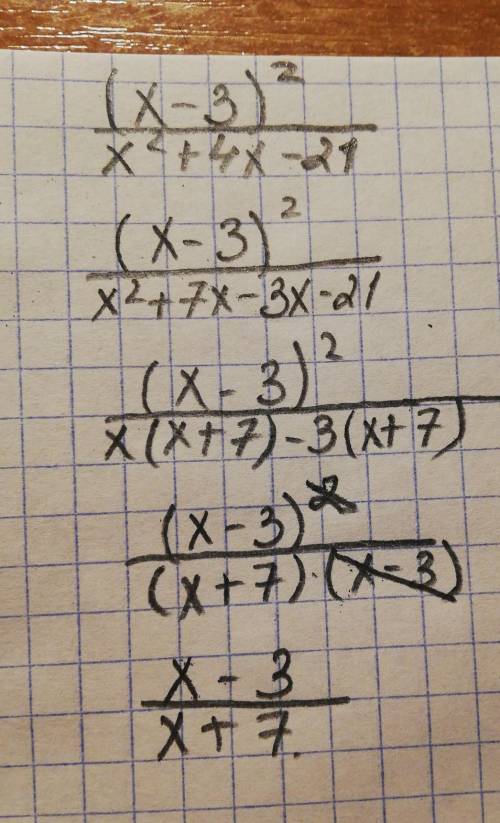 (x-3)²
x²+4x-21
(x-3)²
x²+7x-3x-21
(x-3)²
x(x+7)-3(x+7)
(x-3)²
(x+7)·(x-3)
x-3
x+7.